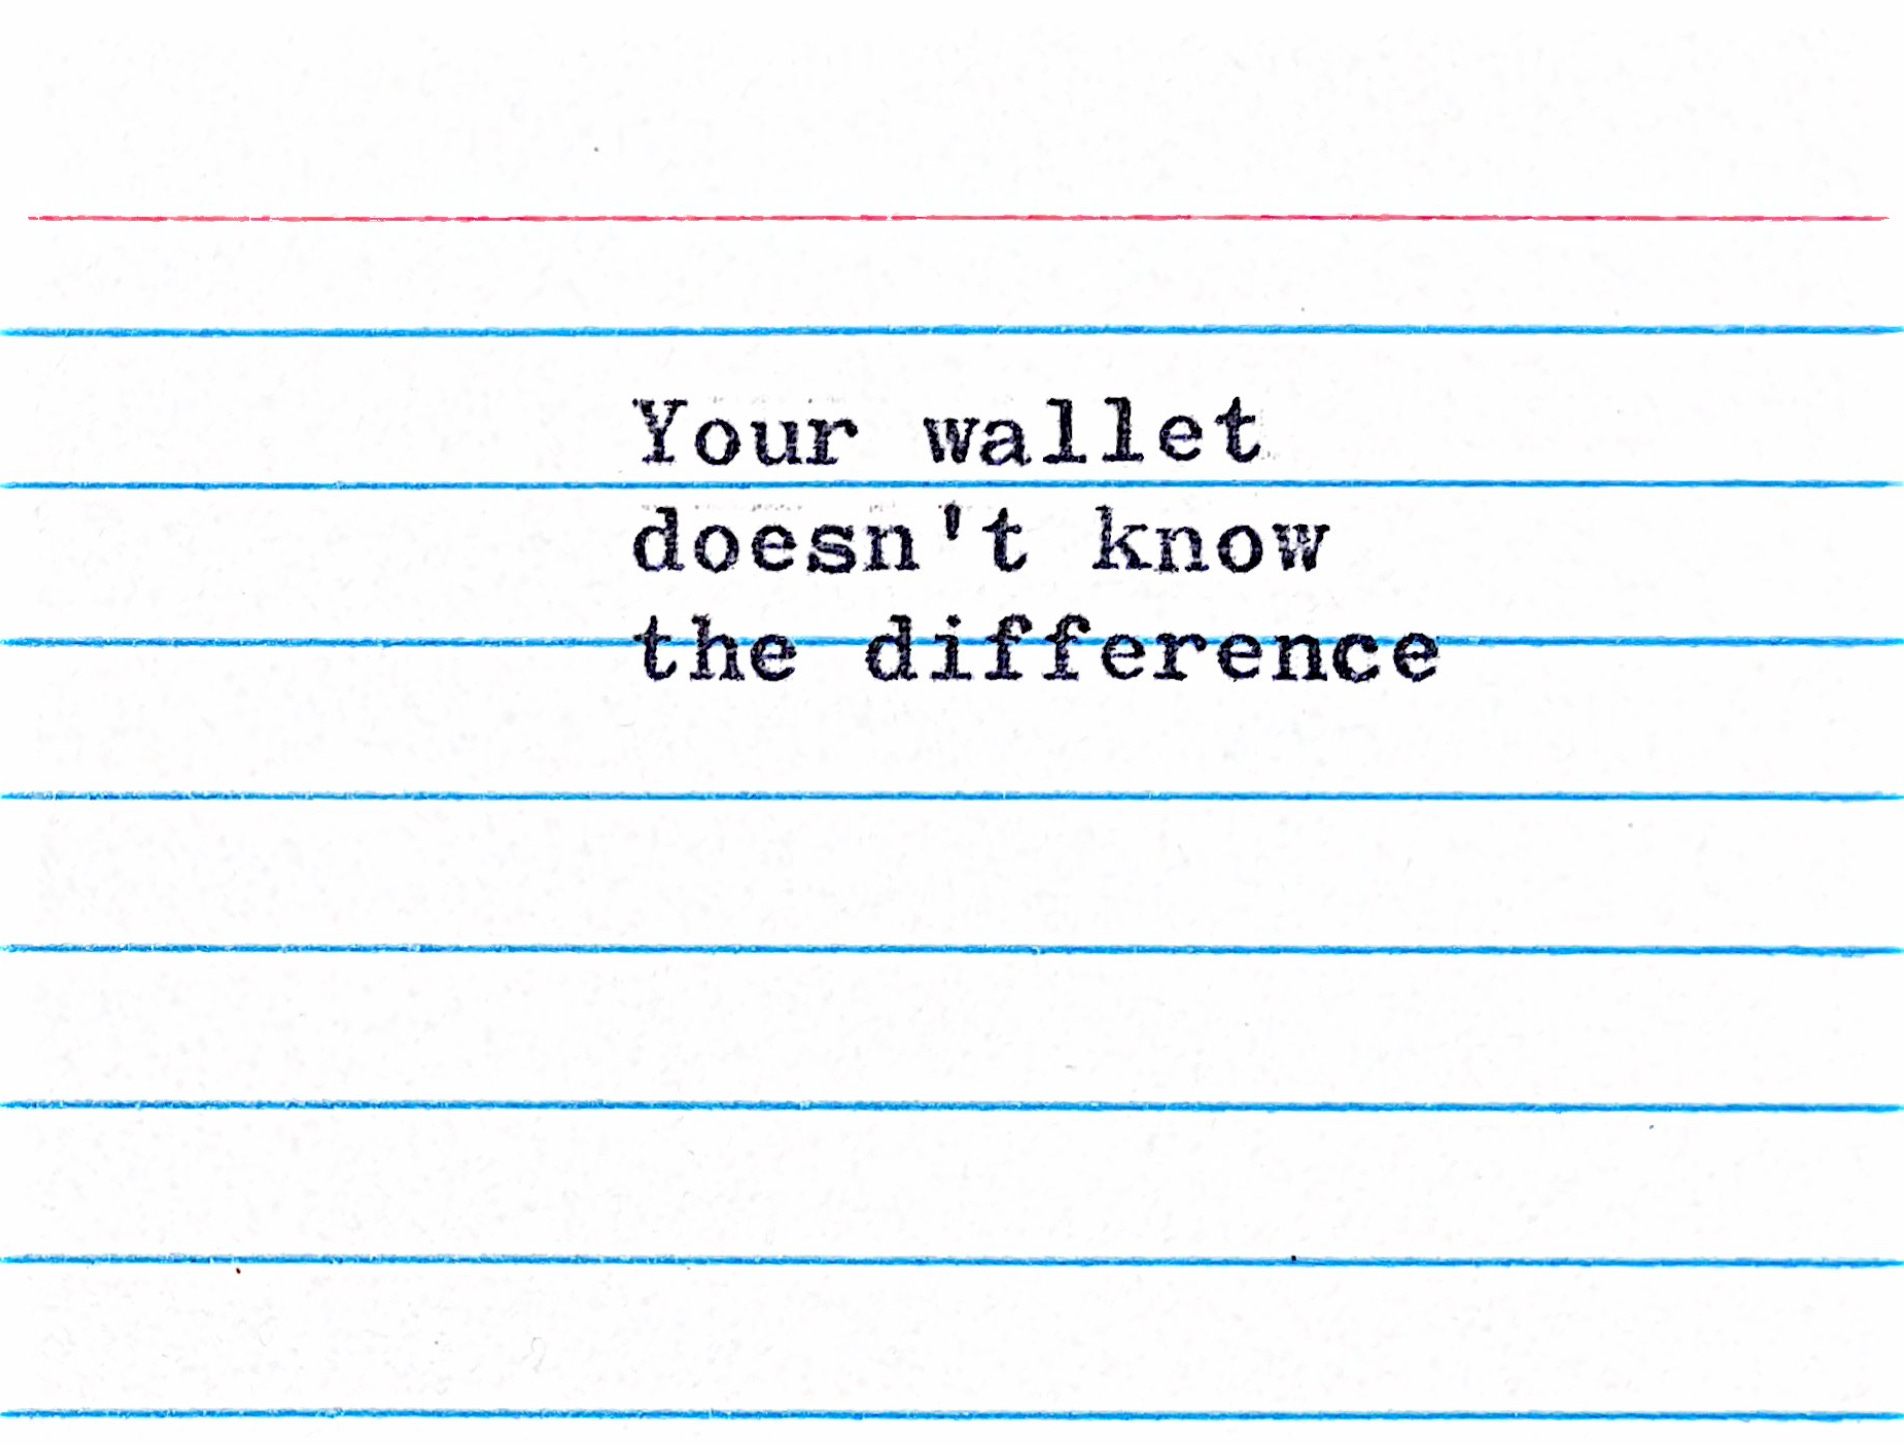 Your wallet
doesn't know
the difference